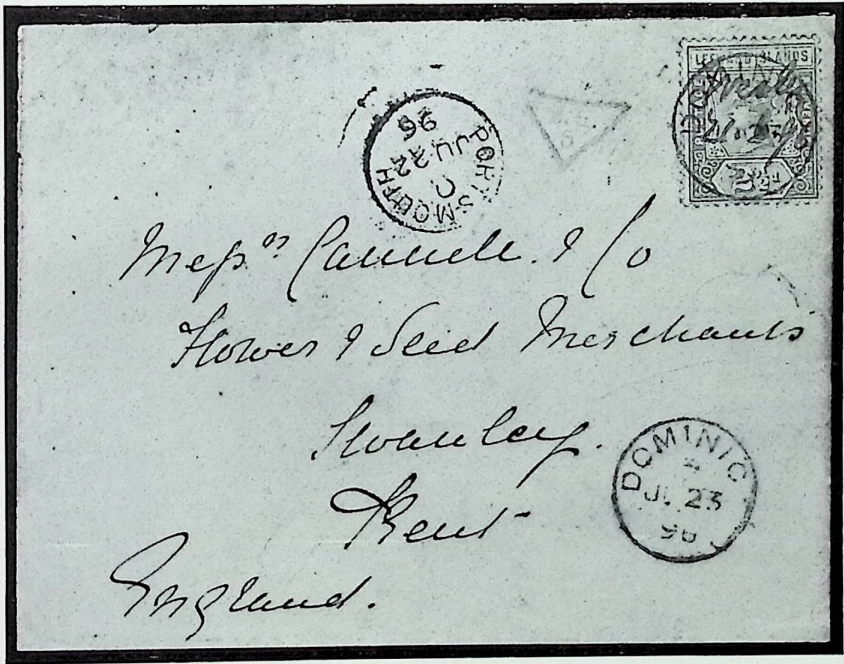 LEEWARD ISLANDS
2½d
PORTSMOUTH
C
JU 22
96
Messrs Cannell & Co
Flower & Seed Merchants
Swanley.
Kent
England.
DOMINIC
JU 23
96